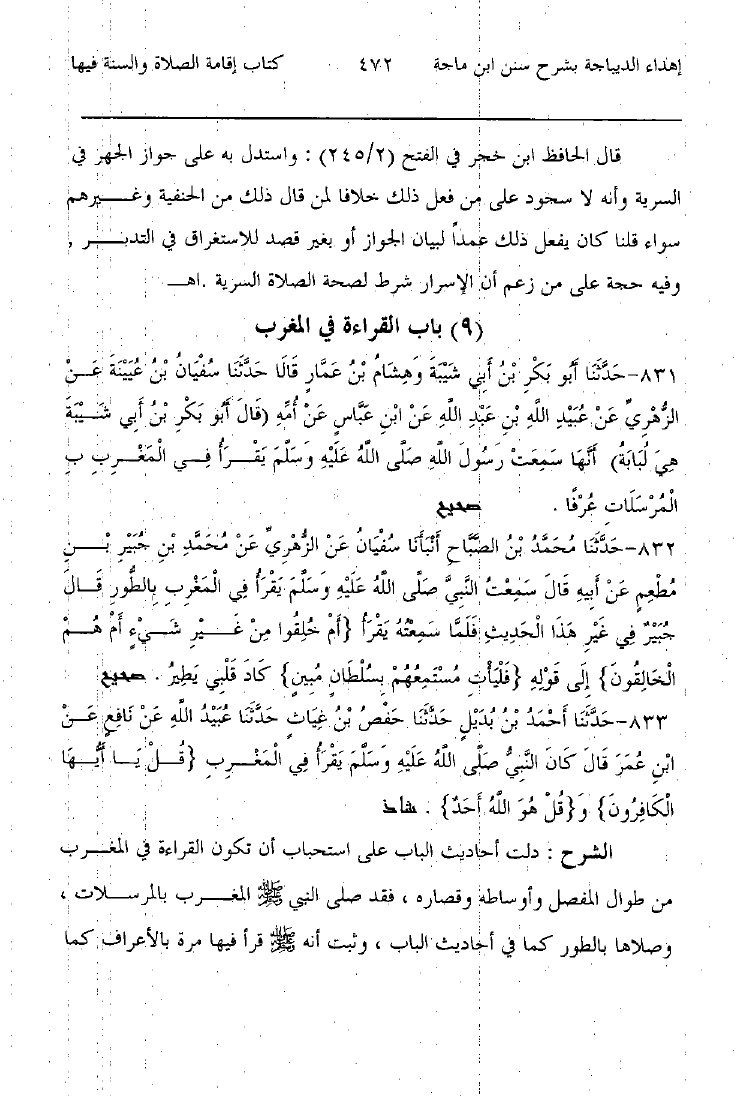 إهداء الديباجة بشرح سنن ابن ماجة ٤٧٢ كتاب إقامة الصلاة والسنة فيها
قال الحافظ ابن حجر في الفتح (٢٤٥/٢) : واستدل به على جواز الجهر في
السرية وأنه لا سجود على من فعل ذلك خلافا لمن قال ذلك من الحنفية وغيرهم
سواء قلنا كان يفعل ذلك عمداً لبيان الجواز أو بغير قصد للاستغراق في التدبر ,
وفيه حجة على من زعم أن الإسرار شرط لصحة الصلاة السرية .اهـ
(٩) باب القراءة في المغرب
٨٣١-حَدَّثَنَا أَبُو بَكْرِ بْنُ أَبِي شَيْبَةَ وَهِشَامُ بْنُ عَمَّارٍ قَالَا حَدَّثَنَا سُفْيَانُ بْنُ عُيَيْنَةَ عَنْ
الزُّهْرِيِّ عَنْ عُبَيْدِ اللَّهِ بْنِ عَبْدِ اللَّهِ عَنْ ابْنِ عَبَّاسٍ عَنْ أُمِّهِ (قَالَ أَبُو بَكْرِ بْنُ أَبِي شَيْبَةَ
هِيَ لُبَابَةُ) أَنَّهَا سَمِعَتْ رَسُولَ اللَّهِ صَلَّى اللَّهُ عَلَيْهِ وَسَلَّمَ يَقْرَأُ فِي الْمَغْرِبِ بِ
الْمُرْسَلَاتِ عُرْفًا . صحيح
٨٣٢-حَدَّثَنَا مُحَمَّدُ بْنُ الصَّبَّاحِ أَنْبَأَنَا سُفْيَانُ عَنْ الزُّهْرِيِّ عَنْ مُحَمَّدِ بْنِ جُبَيْرِ بْنِ
مُطْعِمٍ عَنْ أَبِيهِ قَالَ سَمِعْتُ النَّبِيَّ صَلَّى اللَّهُ عَلَيْهِ وَسَلَّمَ يَقْرَأُ فِي الْمَغْرِبِ بِالطُّورِ قَالَ
جُبَيْرٌ فِي غَيْرِ هَذَا الْحَدِيثِ فَلَمَّا سَمِعْتُهُ يَقْرَأُ {أَمْ خُلِقُوا مِنْ غَيْرِ شَيْءٍ أَمْ هُمْ
الْخَالِقُونَ} إِلَى قَوْلِهِ {فَلْيَأْتِ مُسْتَمِعُهُمْ بِسُلْطَانٍ مُبِينٍ} كَادَ قَلْبِي يَطِيرُ . صحيح
٨٣٣-حَدَّثَنَا أَحْمَدُ بْنُ بُدَيْلٍ حَدَّثَنَا حَفْصُ بْنُ غِيَاثٍ حَدَّثَنَا عُبَيْدُ اللَّهِ عَنْ نَافِعٍ عَنْ
ابْنِ عُمَرَ قَالَ كَانَ النَّبِيُّ صَلَّى اللَّهُ عَلَيْهِ وَسَلَّمَ يَقْرَأُ فِي الْمَغْرِبِ {قُلْ يَا أَيُّهَا
الْكَافِرُونَ} وَ{قُلْ هُوَ اللَّهُ أَحَدٌ} . شاذ
الشرح : دلت أحاديث الباب على استحباب أن تكون القراءة في المغرب
من طوال المفصل وأوساطه وقصاره ، فقد صلى النبي ﷺ المغرب بالمرسلات ،
وصلاها بالطور كما في أحاديث الباب ، وثبت أنه ﷺ قرأ فيها مرة بالأعراف كما